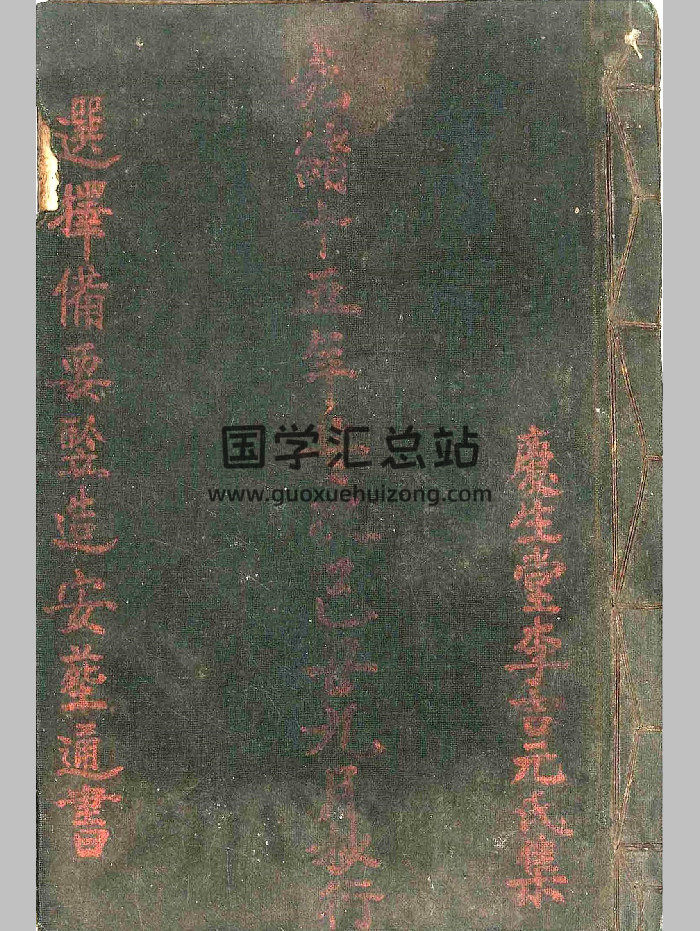 慶生堂李吉元氏集
光緒十五年己丑九月
選擇備要竪造安葬通書
国学汇总站
www.guoxuehuizong.com